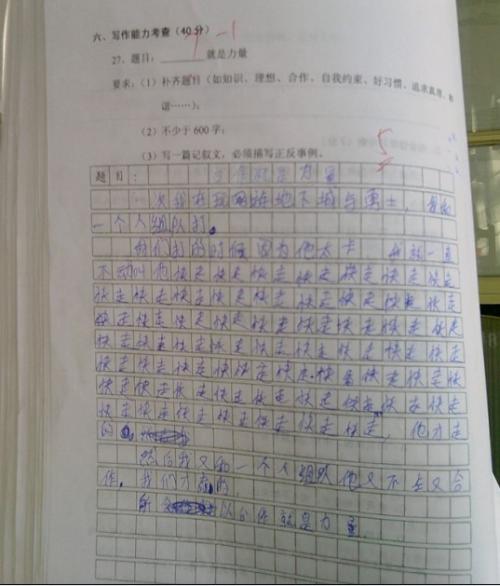 六、写作能力考查（40分）
27. 题目：______就是力量
要求：（1）补齐题目（如知识、理想、合作、自我约束、好习惯、追求真理、和
谐……）；
（2）不少于600字；
（3）写一篇记叙文，必须描写正反事例。
题目：合作就是力量
一次我在玩网游地下城与勇士，我和
一个人组队打。
我们打的时候因为他太卡 我就一直
不动叫他快走快走快走快走快走快走快走快走
快走快走快走快走快走快走快走快走快走快走
快走快走快走快走快走快走快走快走快走快走
快走快走快走快走快走快走快走快走快走快走
快走快走快走快快走快走快走快走快走快走快
快走快走快走快走快走快走快走快走快走快
快走快走快走快走快走快走快走，他才走
的。
然后我又和一个人组队他又不走又合
作，我们才
所以合作就是力量。